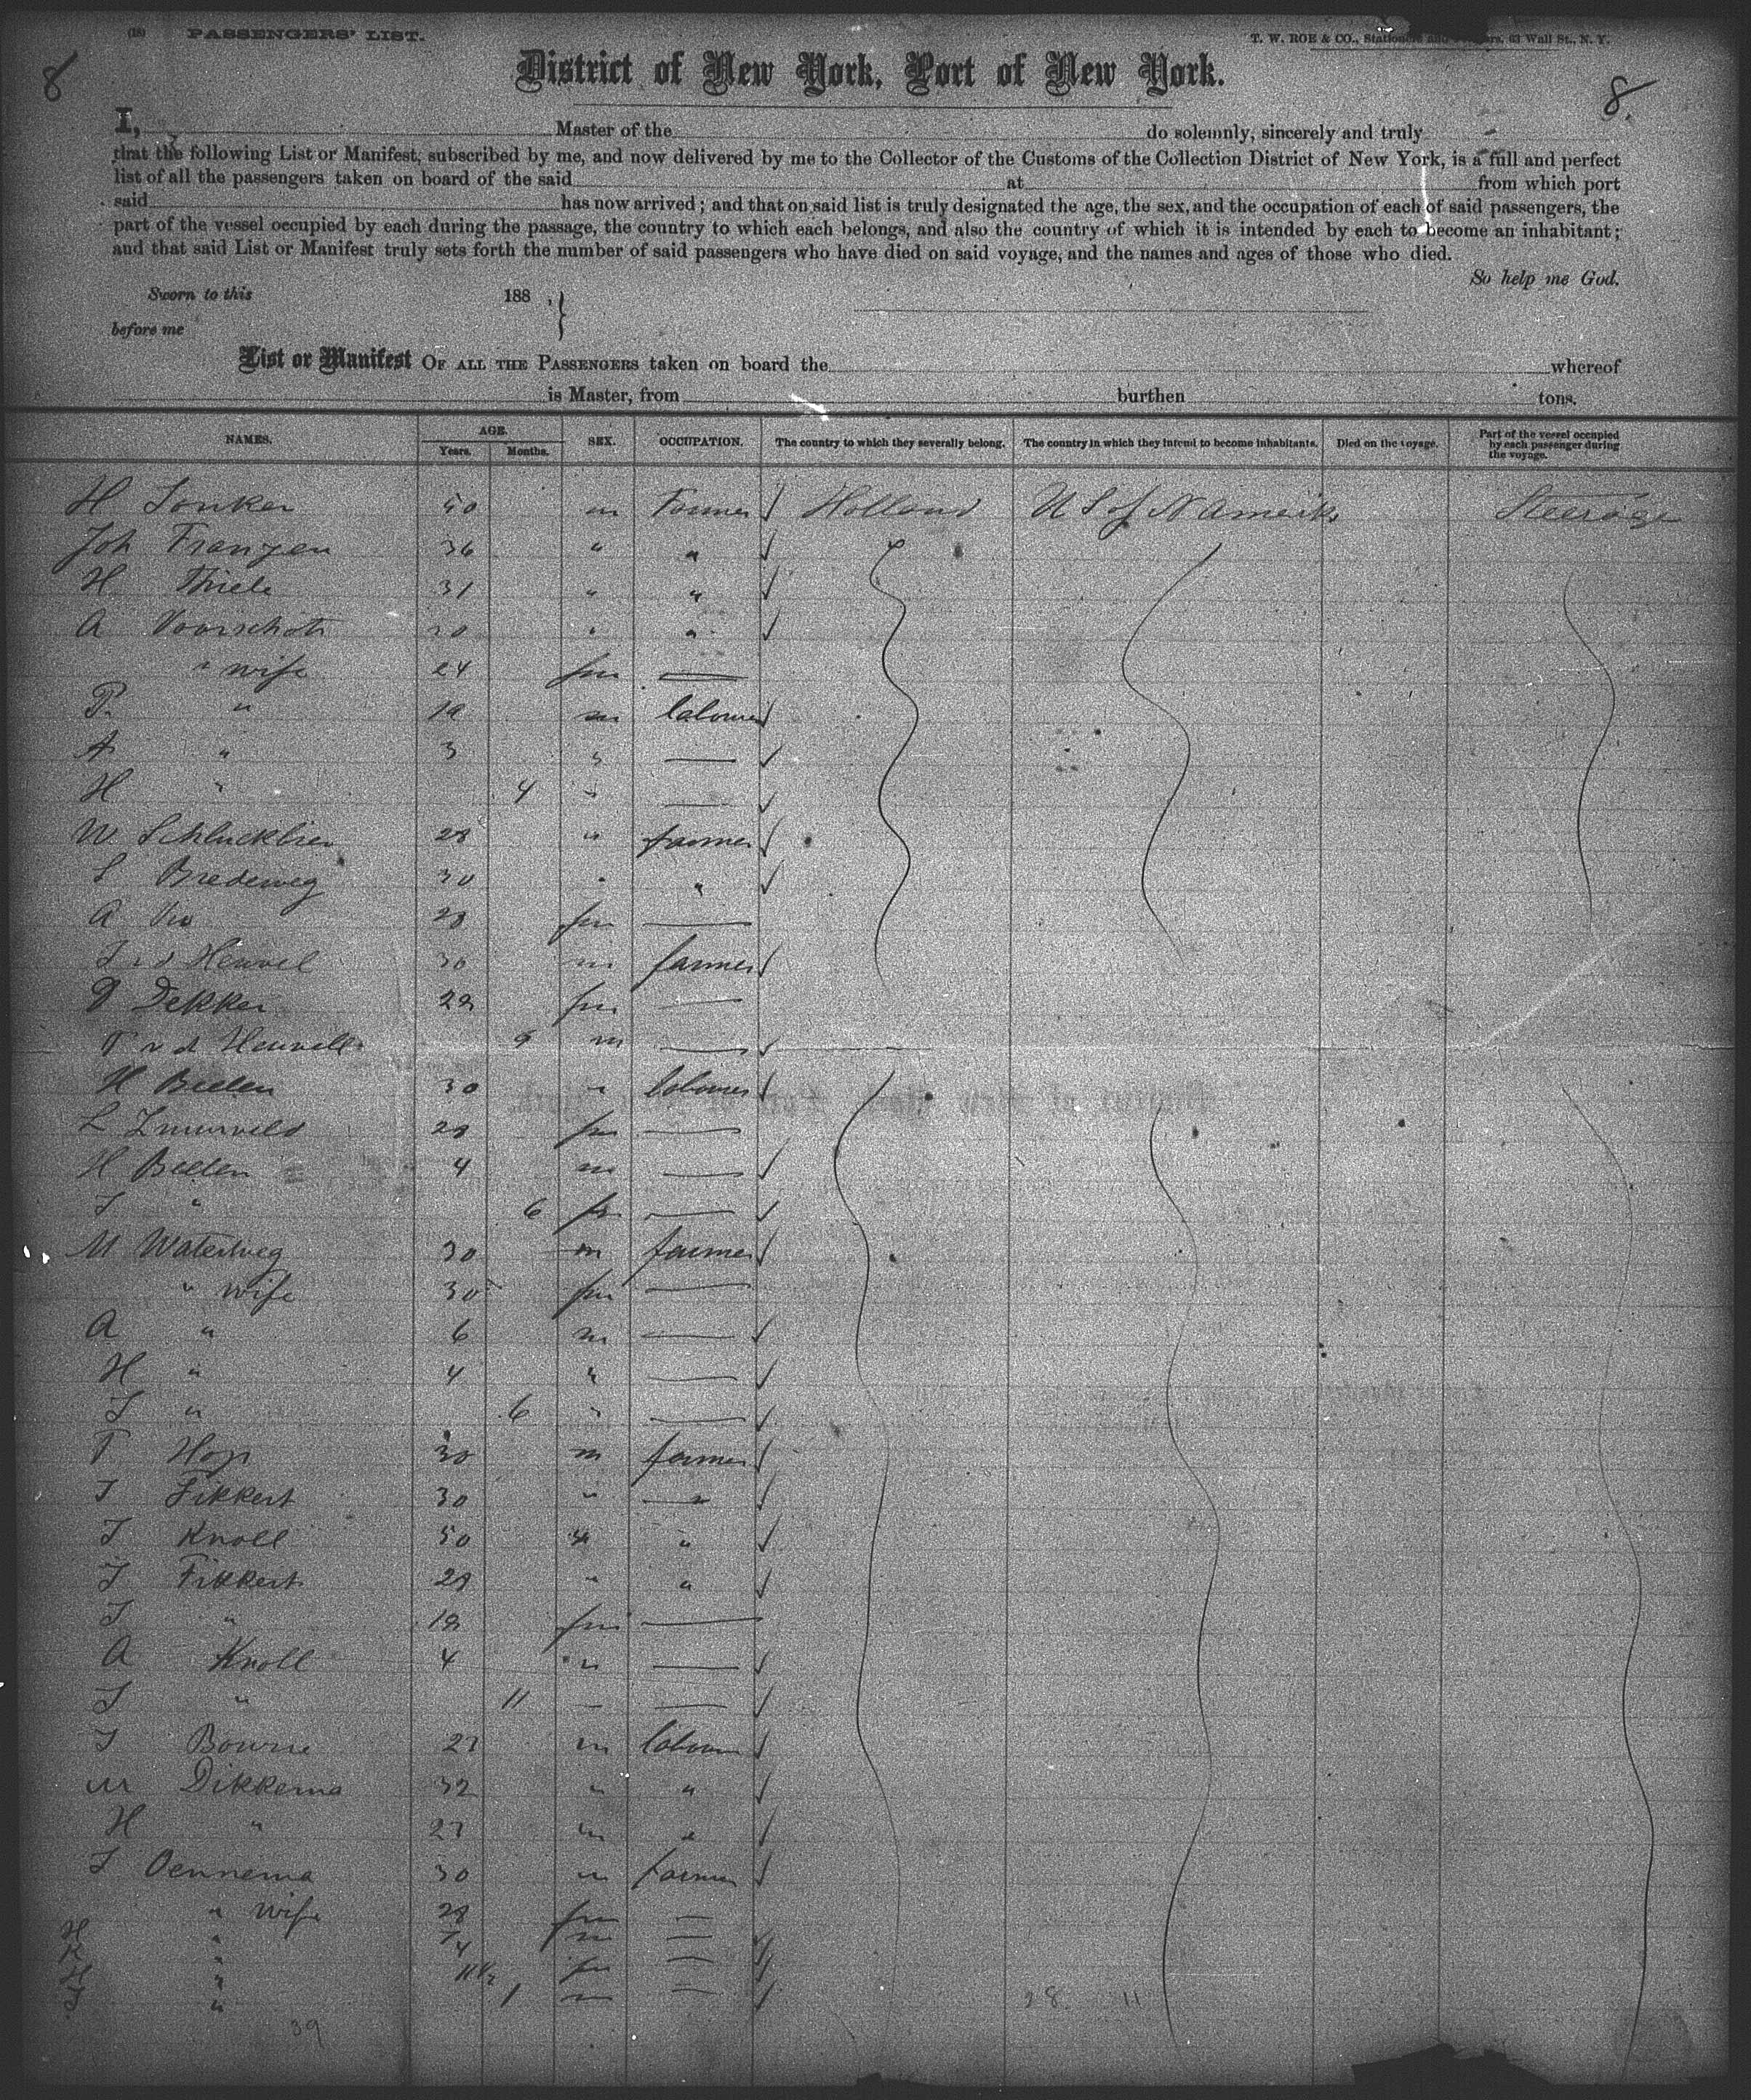 (18) PASSENGERS' LIST.
T. W. ROE & CO., Stationers and 63 Wall St., N. Y.
8
District of New York, Port of New York.
8.
I, Master of the do solemnly, sincerely and truly
that the following List or Manifest, subscribed by me, and now delivered by me to the Collector of the Customs of the Collection District of New York, is a full and perfect
list of all the passengers taken on board of the said at from which port
said has now arrived; and that on said list is truly designated the age, the sex, and the occupation of each of said passengers, the
part of the vessel occupied by each during the passage, the country to which each belongs, and also the country of which it is intended by each to become an inhabitant;
and that said List or Manifest truly sets forth the number of said passengers who have died on said voyage, and the names and ages of those who died.
So help me God.
Sworn to this 188 ,
before me
List or Manifest OF ALL THE PASSENGERS taken on board the whereof
is Master, from burthen tons.
NAMES. AGE. Years. Months. SEX. OCCUPATION. The country to which they severally belong. The country in which they intend to become inhabitants. Died on the voyage. Part of the vessel occupied by each passenger during the voyage.
H Jonker 50 m Farmer Holland U S of N Amerika Steerage
Joh Franzen 36 " "
H Thiele 31 " "
A Voorschots " "
" wife 24 fm
P. " 19 m labourer
A " 3 "
H " 4 "
W 28 " farmer
L Bredeweg 30 " "
A 28 fm
J v d Heuvel 30 m farmer
D Dekker 22 fm
T v d Heuvell 9 m
H Beelen 30 " labourer
L 28 fm
H Beelen 4 m
J " 6 fm
M Waterweg 30 m farmer
" wife 30 fm
A " 6 m
H " 4 "
J " 6 "
T Hop 30 m farmer
J Fikkert 30 " "
J Knoll 50 "
J Fikkert 28 " "
J " 19 fm
A Knoll 4 "
J " 11
J Bowrie 27 m labour
M Dikkema 32 " "
H " 27 m "
J Oennema 30 m farmer
" wife 28 fm
H " 7 m
K " 4
H " 11 1/2 fm
J " 1 m
39
28 11